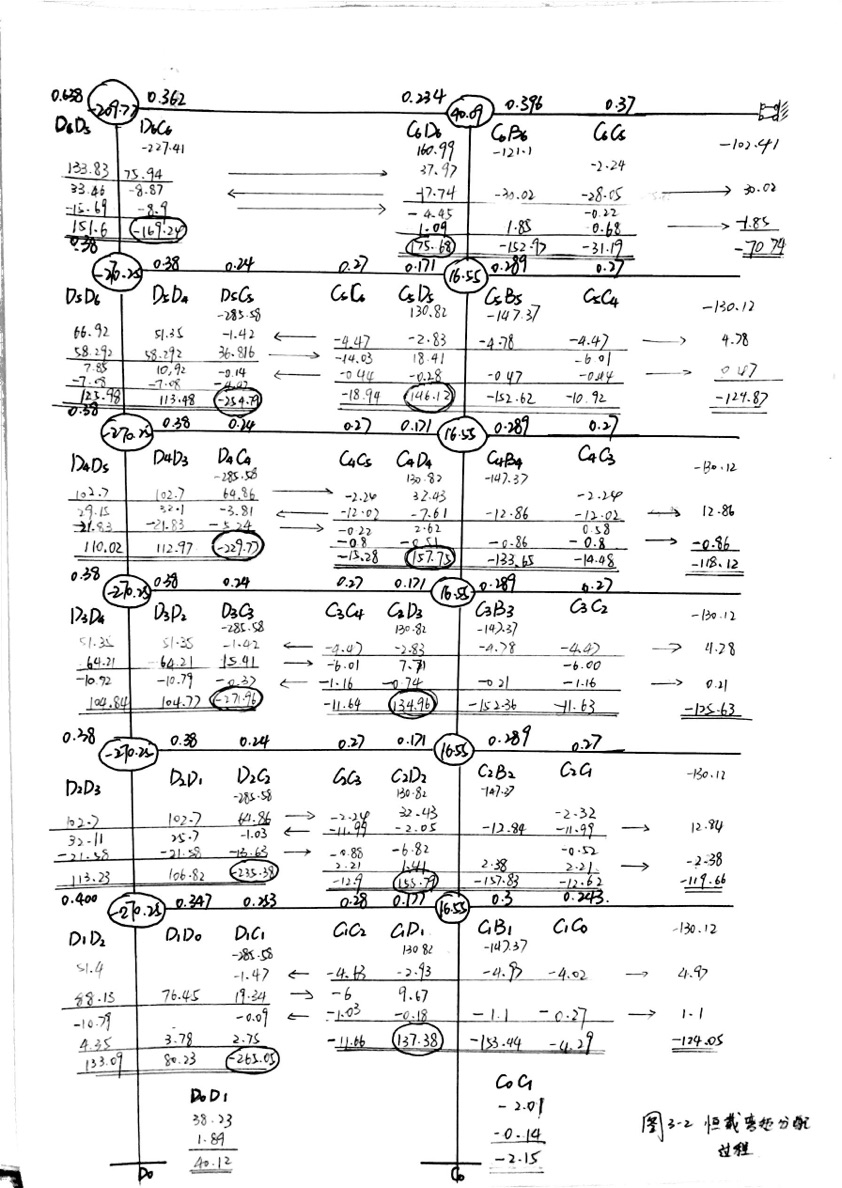 0.638 -209.77 0.362 0.234 40.09 0.396 0.37
D6D5 D6C6 C6D6 C6B6 C6C5
-227.41 160.99 -121.1 -102.41
133.83 75.94 37.97 -2.24
33.46 -8.87 -17.74 -30.02 -28.05 30.02
-15.69 -8.9 -4.45 -0.22
151.6 -169.24 1.09 1.85 0.68 -1.85
175.68 -152.97 -31.19 -70.74
0.38 -270.25 0.38 0.24 0.27 0.171 16.55 0.289 0.27
D5D6 D5D4 D5C5 C5C6 C5D5 C5B5 C5C4
-285.58 130.82 -147.37 -130.12
66.92 51.35 -1.42 -4.47 -2.83 -4.78 -4.47 4.78
58.292 58.292 36.816 -14.03 18.41 -6.01
7.85 10.92 -0.14 -0.44 -0.28 -0.47 -0.44 0.47
-7.08 -7.08
125.98 113.48 -254.79 -18.94 146.12 -152.62 -10.92 -124.87
0.38 -270.25 0.38 0.24 0.27 0.171 16.55 0.289 0.27
D4D5 D4D3 D4C4 C4C5 C4D4 C4B4 C4C3
-285.58 130.82 -147.37 -130.12
102.7 102.7 64.86 -2.24 32.43 -2.24
29.15 32.1 -3.81 -12.02 -7.61 -12.86 -12.02 12.86
-21.83 -21.83 -5.24 -0.22 2.62 0.58
-0.8 -0.51 -0.86 -0.8 -0.86
110.02 112.97 -229.77 -15.28 157.75 -133.65 -14.48 -118.12
0.38 -270.25 0.38 0.24 0.27 0.171 16.55 0.289 0.27
D3D4 D3D2 D3C3 C3C4 C2D3 C3B3 C3C2
-285.58 130.82 -147.37 -130.12
51.35 51.35 -1.42 -4.47 -2.83 -4.78 -4.47 4.78
64.21 64.21 15.41 -6.01 7.71 -6.00
-10.92 -10.79 -0.37 -1.16 -0.74 -0.21 -1.16 0.21
104.84 104.77 -271.96 -11.64 134.96 -152.36 -11.63 -125.63
0.38 -270.25 0.38 0.24 0.27 0.171 16.55 0.289 0.27
D2D3 D2D1 D2C2 C2C3 C2D2 C2B2 C2C1
-285.58 130.82 -147.37 -130.12
102.7 102.7 64.86 -2.24 32.43 -2.32
32.11 25.7 -1.03 -11.99 -2.05 -12.84 -11.99 12.84
-21.58 -21.58 -13.63 -0.88 -6.82 -0.52
2.21 1.41 2.38 2.21 -2.38
113.23 106.82 -235.38 -12.9 155.79 -157.83 -12.62 -119.66
0.400 -270.25 0.347 0.253 0.28 0.177 16.55 0.3 0.243
D1D2 D1D0 D1C1 C1C2 C1D1 C1B1 C1C0
-285.58 130.82 -147.37 -130.12
51.4 -1.47 -4.63 -2.93 -4.97 -4.02 4.97
88.15 76.45 19.34 -6 9.67
-10.79 -0.09 -1.03 -0.18 -1.1 -0.27 1.1
4.35 3.78 2.75 -11.66 137.38 -153.44 -4.29 -124.05
133.09 80.23 -265.05
D0D1 C0C1
38.23 -2.01
1.89 -0.14
40.12 -2.15
D0 C0
图3-2 恒载弯矩分配
过程